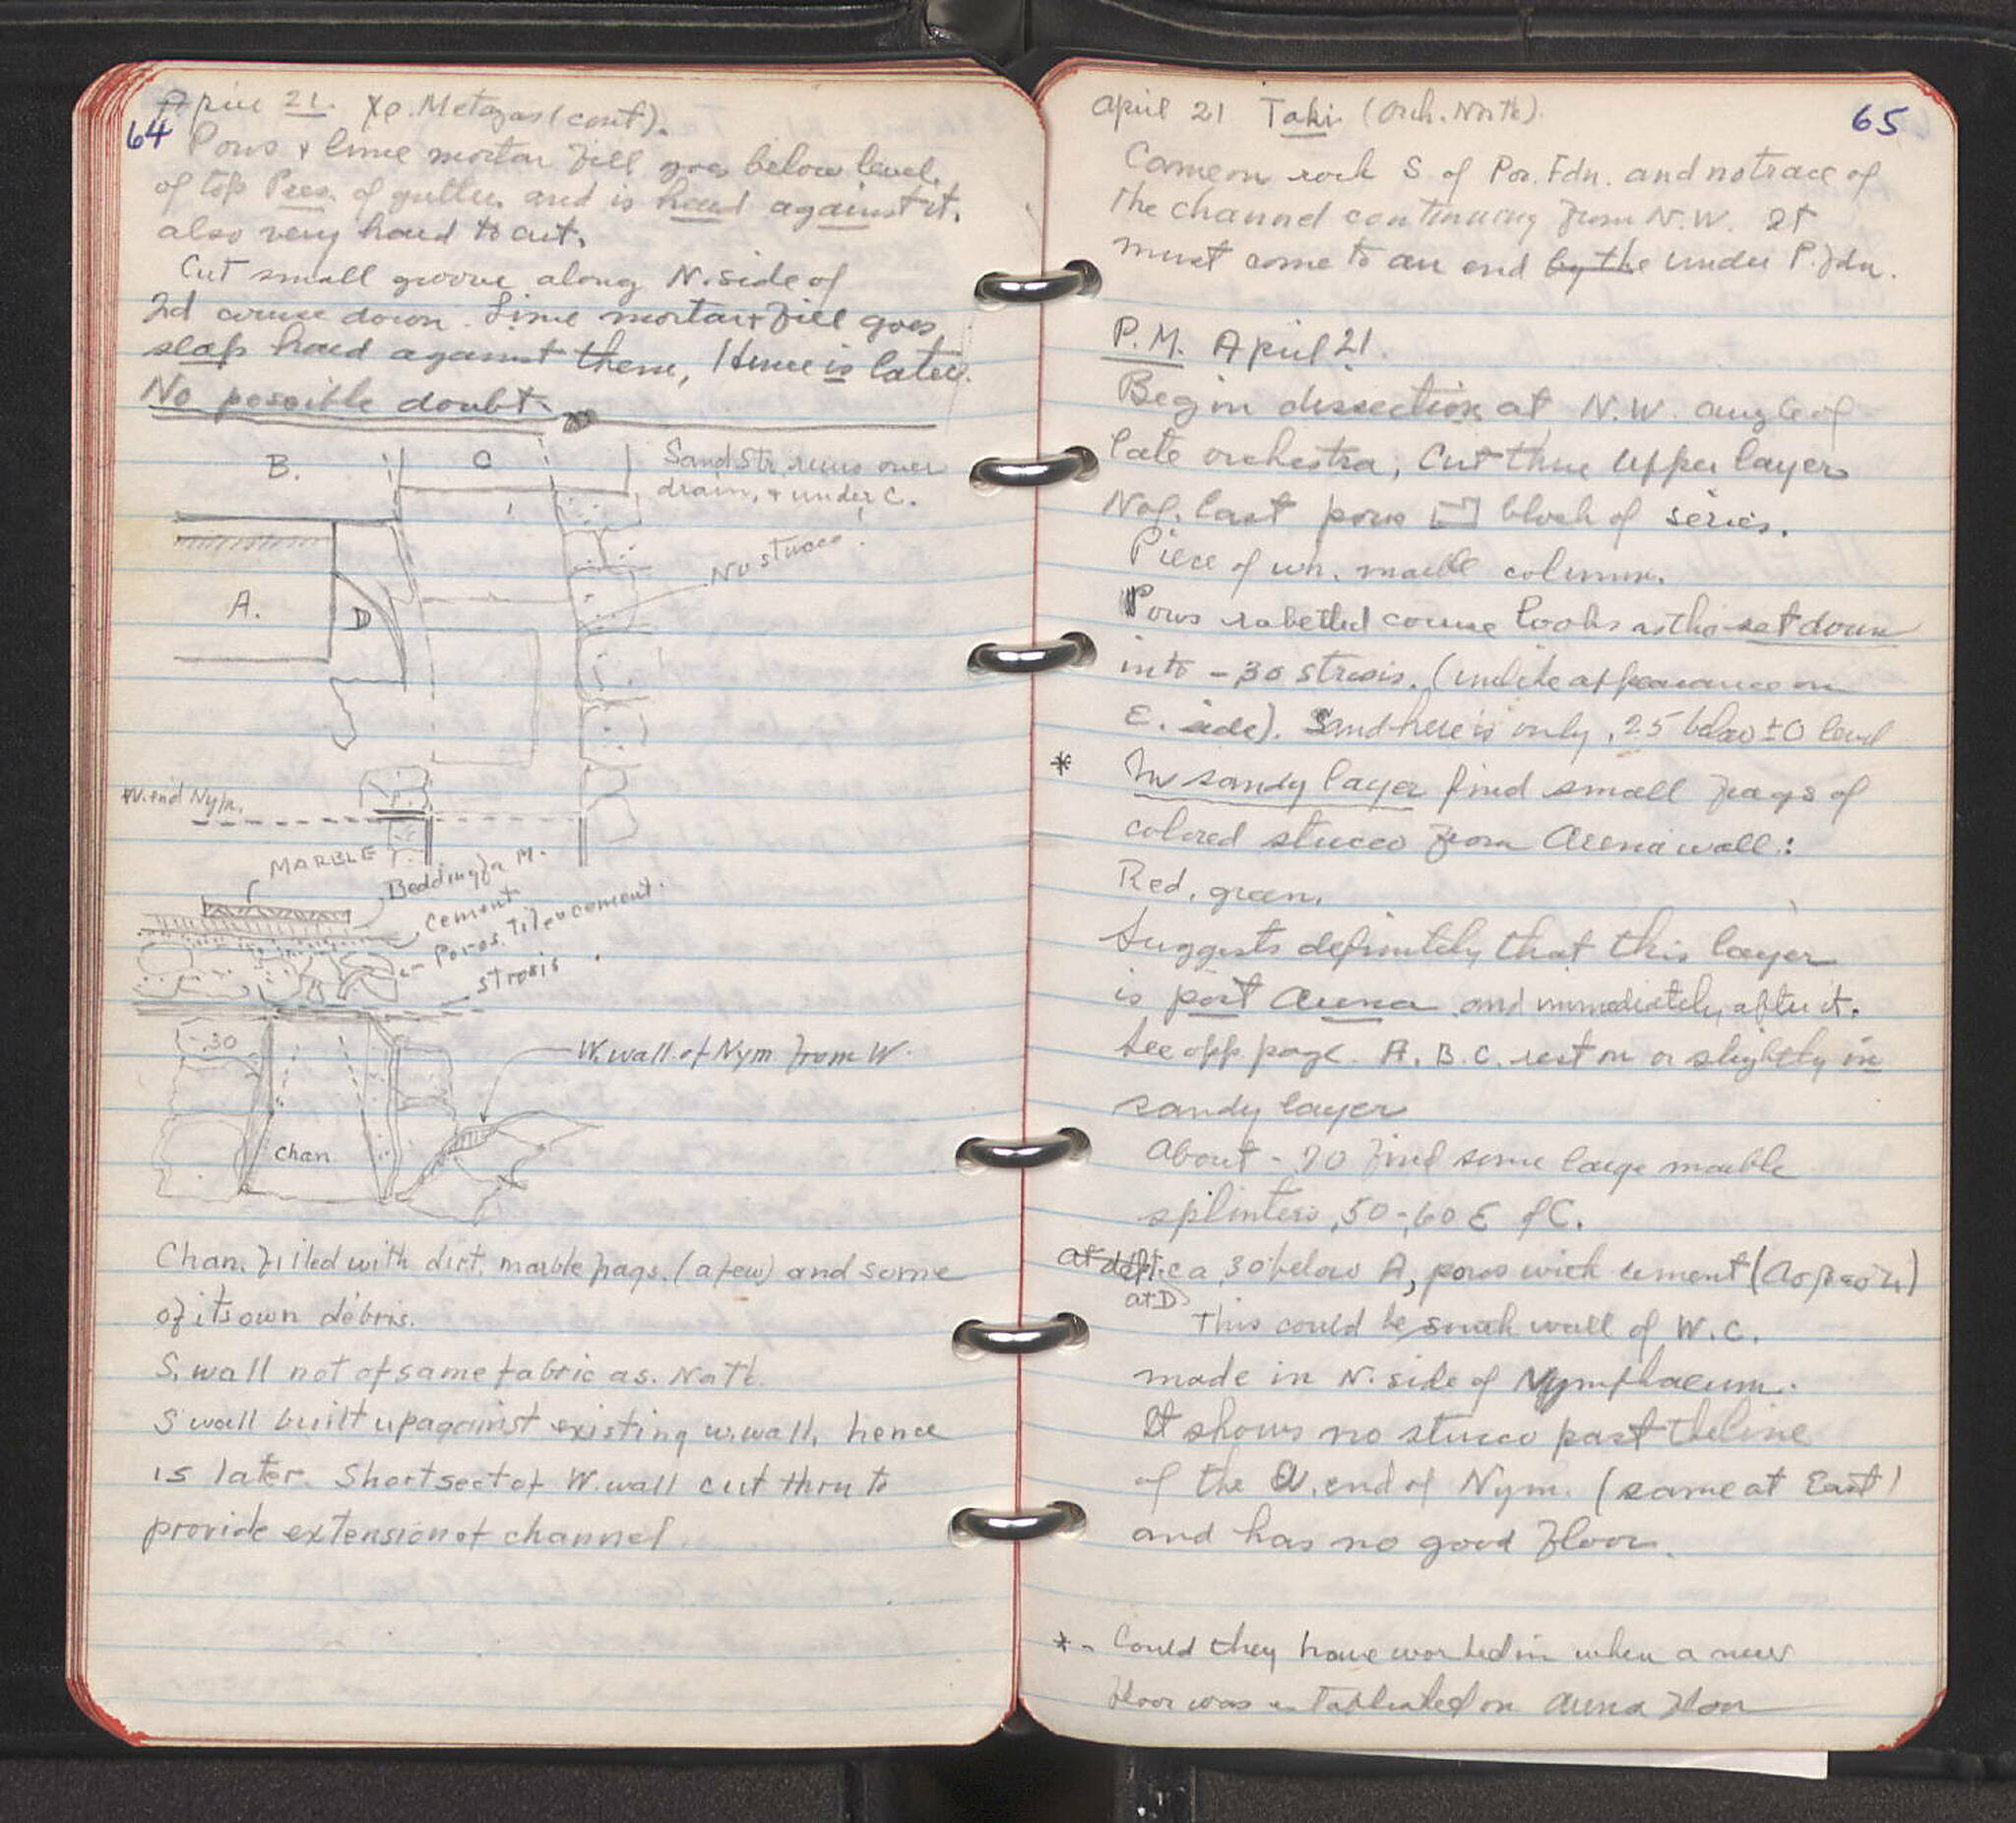 64
April 21. Χρ. Metozas (cont).
Poros & lime mortar fill goes below level
of top Pres. of gutter and is hard against it.
also very hard to cut.
Cut small groove along N. side of
2d course down. Lime mortar fill goes
slap hard against them, Hence is later.
No possible doubt.
B.
C
Sand Str. runs over
drain, & under C.
No stucco!
A.
D
W. end Nym.
MARBLE
Bedding for M.
Cement
Poros. Tile & cement.
strosis
-.30
W. wall of Nym from W.
Chan
Chan. filled with dirt, marble frags. (a few) and some
of its own débris.
S. wall not of same fabric as. North.
S wall built up against existing w. wall, hence
is later. Short sect of W. wall cut thru to
provide extension of channel
65
April 21 Taki (Orch. North).
Came on rock S. of Por. Fdn. and no trace of
the channel continuing from N.W. It
must come to an end by the under P. fdn.
P.M. April 21.
Begin dissection at N.W. angle of
late orchestra, Cut thru upper layer
N of last poros block of series.
Piece of wh. marble column.
Poros rabetted course looks as tho set down
into -30 strosis. (unlike appearance on
E. side). Sand here is only .25 below ±0 level
* In sandy layer find small frags of
colored stucco from Arena wall:
Red, green.
Suggests definitely that this layer
is post Arena and immediately after it.
See opp. page. A. B. C. rest on or slightly in
sandy layer
About -.70 find some large marble
splinters .50-.60 E of C.
at depth ca .30 below A, poros with cement
at D
This could be south wall of W.C.
made in N. side of Nymphaeum.
It shows no stucco past the line
of the W. end of Nym. (same at East)
and has no good floor.
*- Could they have worked in when a new
floor was established on arena floor